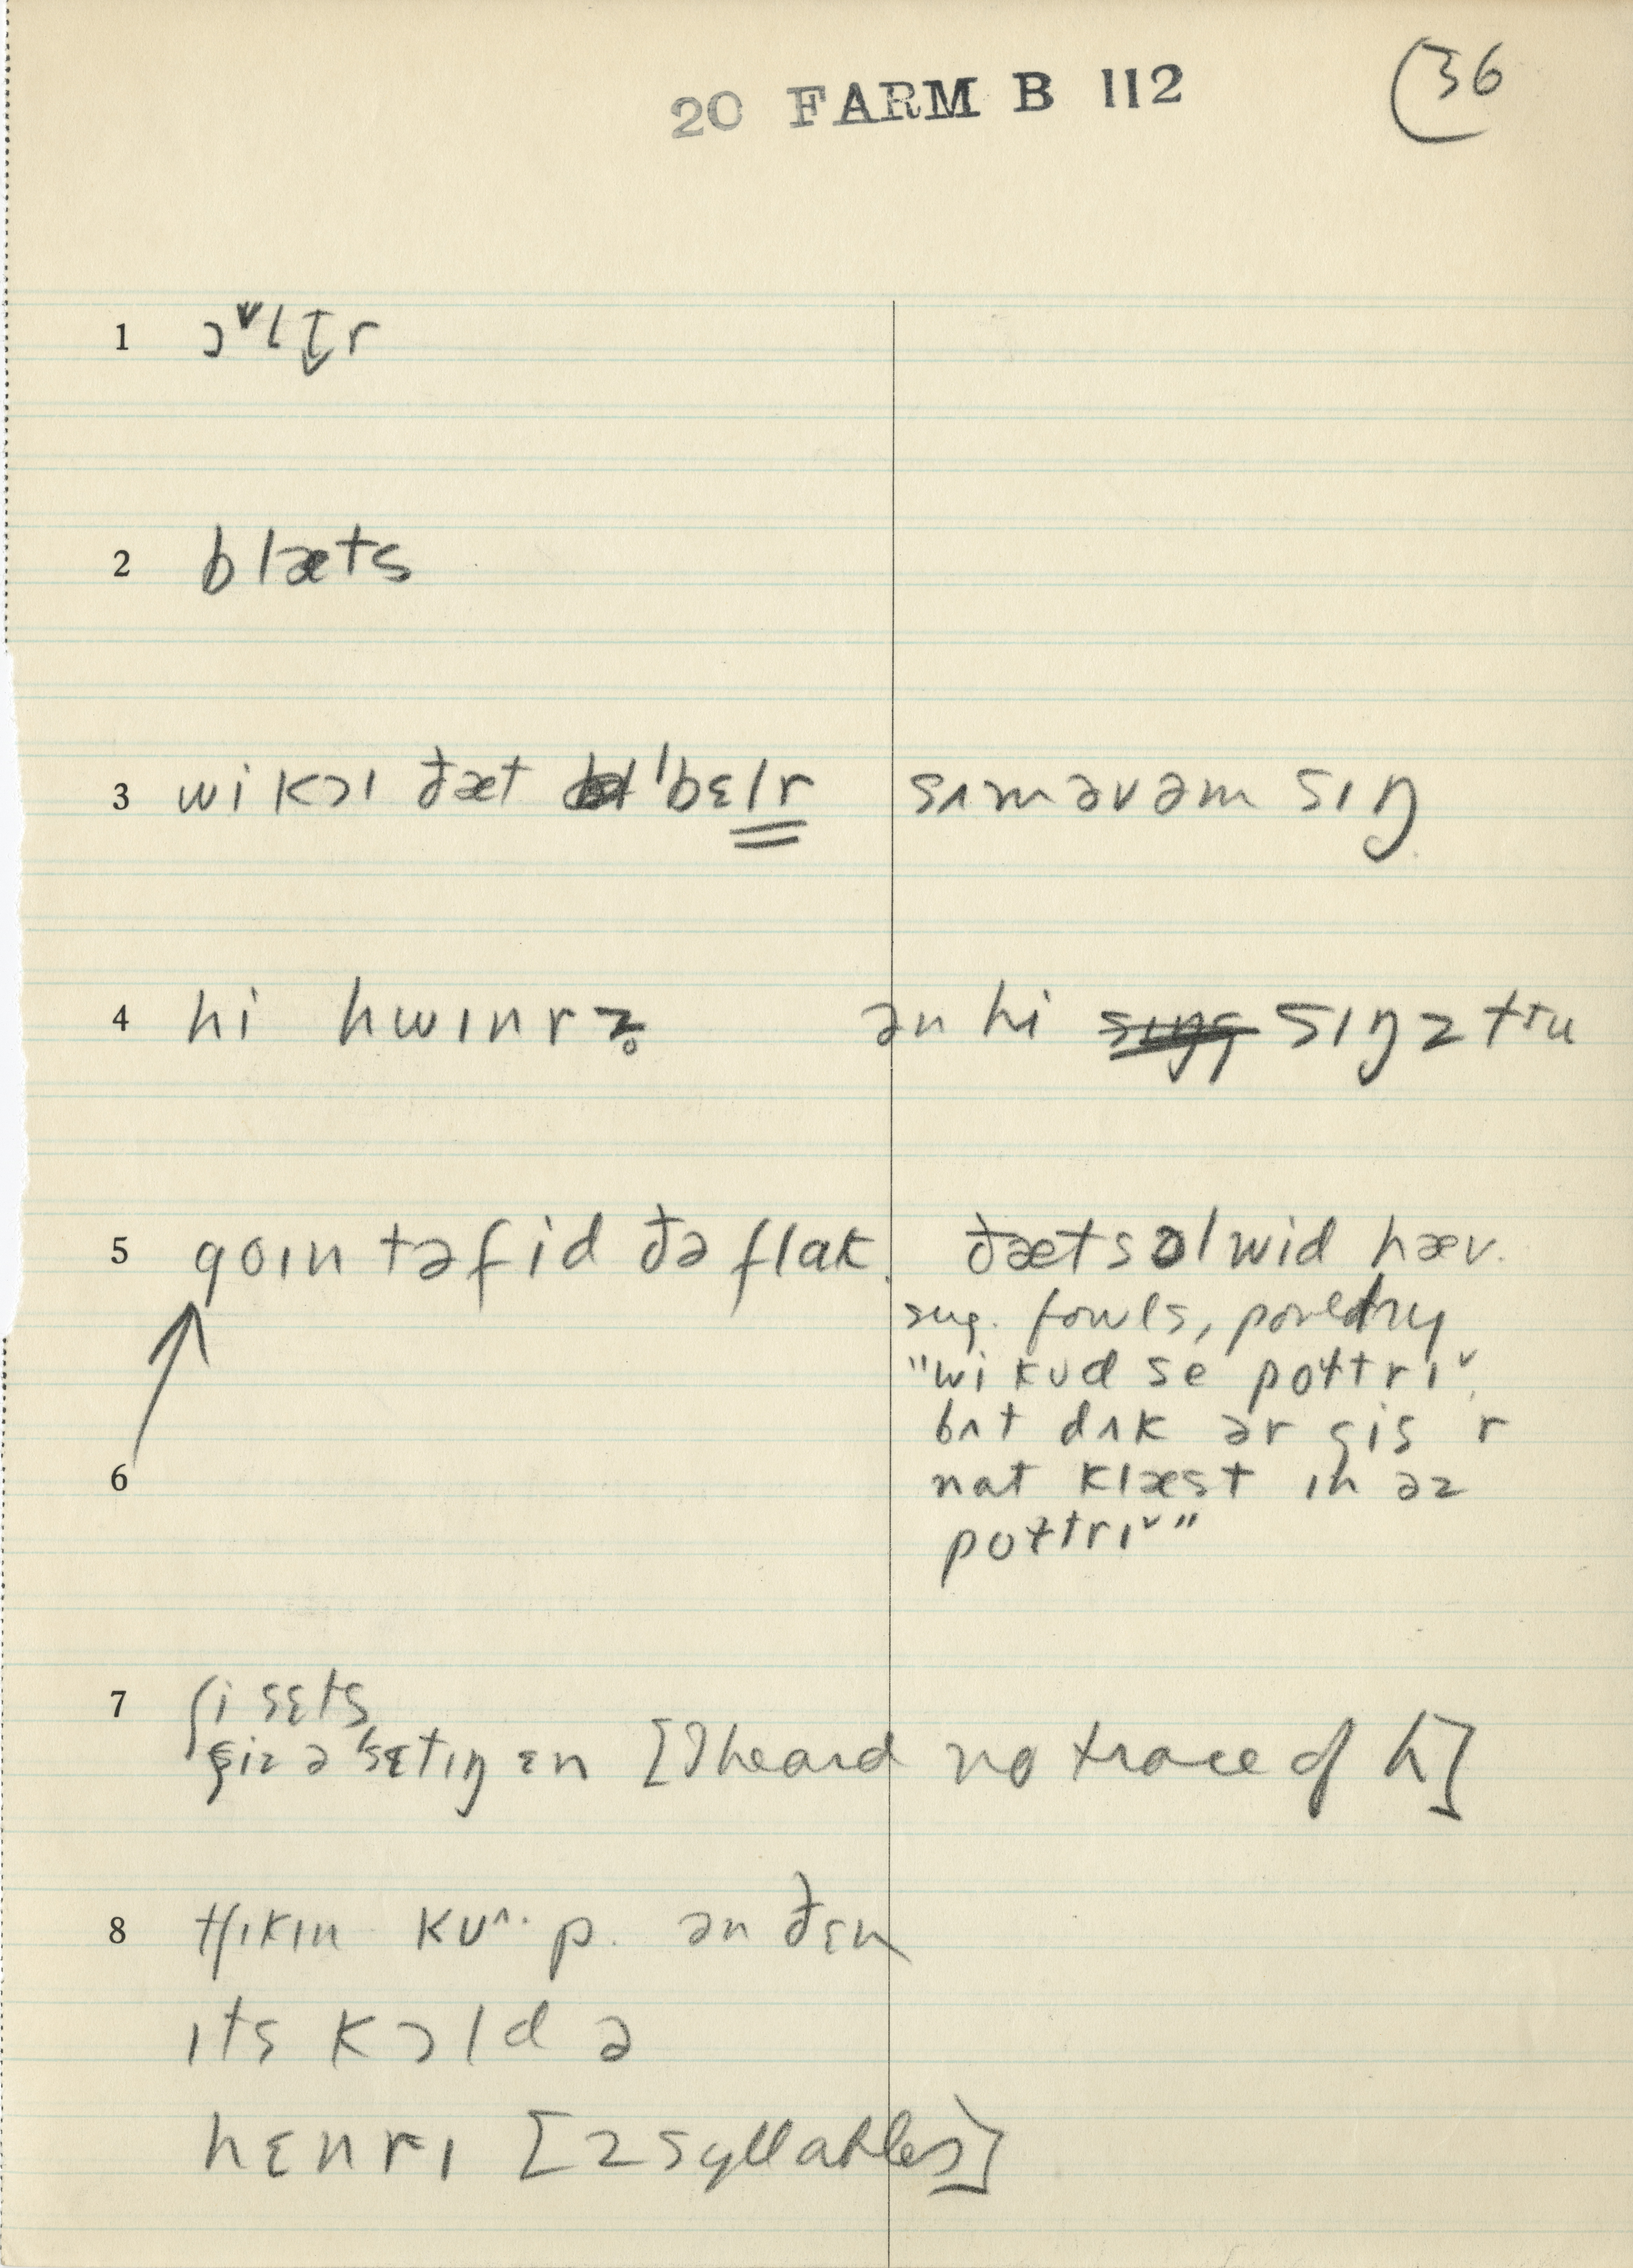 20 FARM B 112
36
1 ɔ˅lt̬r
2 blæts
3 wi kɔl ðæt ˈbɛlr sʌm əv əm sıŋ
4 hi hwınrz̥ ən hi sıŋz tru
5 goın tə fid ðə flak. ðæts ɔl wid hæv.
sug. fowls, poultry
"wi kʊd se poɫtrı˅.
bʌt dʌk ər gis r
6 nat klæst ın əz
poɫtrı˅"
7 ʃi sɛts
ʃiz ə ˈsɛtıŋ ɛn [I heard no trace of h]
8 tʃıkın kʊ^·p. ən ðɛn
ıts kɔld ə
hɛnrı [2 syllables]